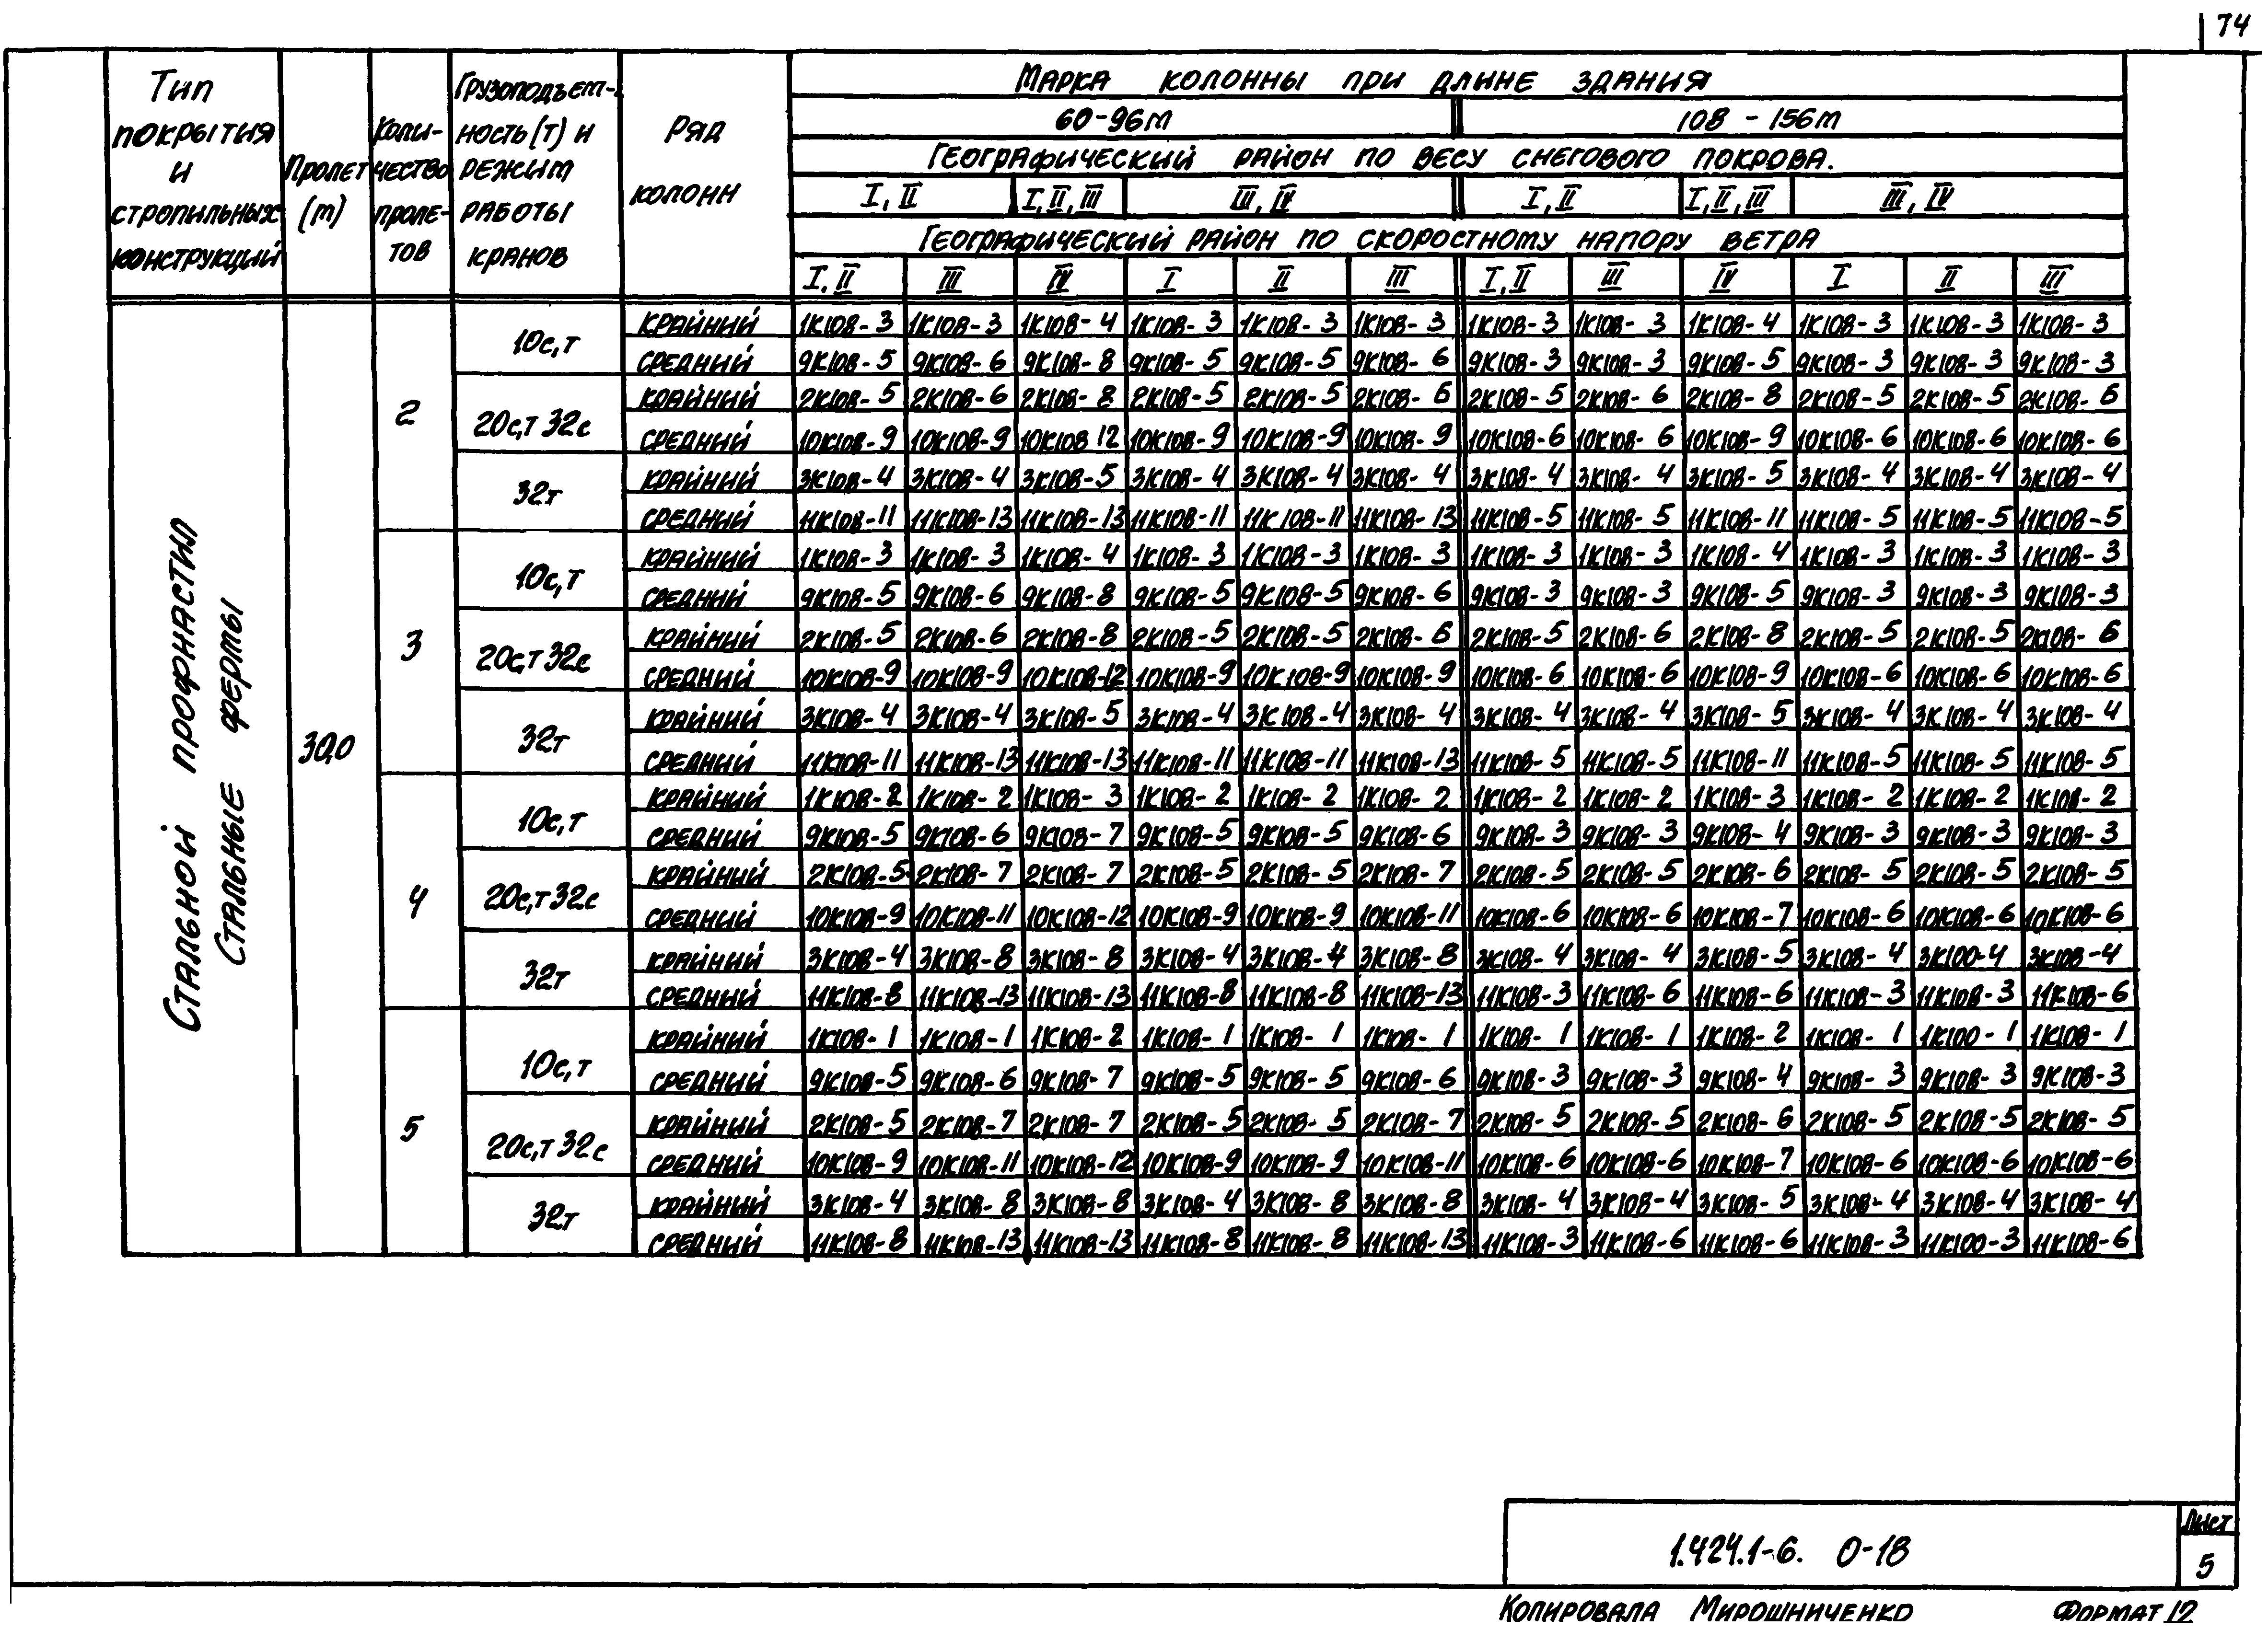 74
Тип покрытия и стропильных конструкций
Пролет (м)
Количество пролетов
Грузоподъемность (т) и режим работы кранов
Ряд колонн
Марка колонны при длине здания
60-96м 108 - 156м
Географический район по весу снегового покрова.
I, II I, II, III III, IV I, II I, II, III III, IV
Географический район по скоростному напору ветра
I, II III IV I II III I, II III IV I II III
Стальной профнастил
Стальные фермы
30,0
2
10с,т
крайний 1К108-3 1К108-3 1К108-4 1К108-3 1К108-3 1К108-3 1К108-3 1К108-3 1К108-4 1К108-3 1К108-3 1К108-3
средний 9К108-5 9К108-6 9К108-8 9К108-5 9К108-5 9К108-6 9К108-3 9К108-3 9К108-5 9К108-3 9К108-3 9К108-3
20с,т 32с
крайний 2К108-5 2К108-6 2К108-8 2К108-5 2К108-5 2К108-6 2К108-5 2К108-6 2К108-8 2К108-5 2К108-5 2К108-6
средний 10К108-9 10К108-9 10К108 12 10К108-9 10К108-9 10К108-9 10К108-6 10К108-6 10К108-9 10К108-6 10К108-6 10К108-6
32т
крайний 3К108-4 3К108-4 3К108-5 3К108-4 3К108-4 3К108-4 3К108-4 3К108-4 3К108-5 3К108-4 3К108-4 3К108-4
средний 11К108-11 11К108-13 11К108-13 11К108-11 11К108-11 11К108-13 11К108-5 11К108-5 11К108-11 11К108-5 11К108-5 11К108-5
3
10с,т
крайний 1К108-3 1К108-3 1К108-4 1К108-3 1К108-3 1К108-3 1К108-3 1К108-3 1К108-4 1К108-3 1К108-3 1К108-3
средний 9К108-5 9К108-6 9К108-8 9К108-5 9К108-5 9К108-6 9К108-3 9К108-3 9К108-5 9К108-3 9К108-3 9К108-3
20с,т 32с
крайний 2К108-5 2К108-6 2К108-8 2К108-5 2К108-5 2К108-6 2К108-5 2К108-6 2К108-8 2К108-5 2К108-5 2К108-6
средний 10К108-9 10К108-9 10К108-12 10К108-9 10К108-9 10К108-9 10К108-6 10К108-6 10К108-9 10К108-6 10К108-6 10К108-6
32т
крайний 3К108-4 3К108-4 3К108-5 3К108-4 3К108-4 3К108-4 3К108-4 3К108-4 3К108-5 3К108-4 3К108-4 3К108-4
средний 11К108-11 11К108-13 11К108-13 11К108-11 11К108-11 11К108-13 11К108-5 11К108-5 11К108-11 11К108-5 11К108-5 11К108-5
4
10с,т
крайний 1К108-2 1К108-2 1К108-3 1К108-2 1К108-2 1К108-2 1К108-2 1К108-2 1К108-3 1К108-2 1К108-2 1К108-2
средний 9К108-5 9К108-6 9К108-7 9К108-5 9К108-5 9К108-6 9К108-3 9К108-3 9К108-4 9К108-3 9К108-3 9К108-3
20с,т 32с
крайний 2К108-5 2К108-7 2К108-7 2К108-5 2К108-5 2К108-7 2К108-5 2К108-5 2К108-6 2К108-5 2К108-5 2К108-5
средний 10К108-9 10К108-11 10К108-12 10К108-9 10К108-9 10К108-11 10К108-6 10К108-6 10К108-7 10К108-6 10К108-6 10К108-6
32т
крайний 3К108-4 3К108-8 3К108-8 3К108-4 3К108-4 3К108-8 3К108-4 3К108-4 3К108-5 3К108-4 3К100-4 3К108-4
средний 11К108-8 11К108-13 11К108-13 11К108-8 11К108-8 11К108-13 11К108-3 11К108-6 11К108-6 11К108-3 11К108-3 11К108-6
5
10с,т
крайний 1К108-1 1К108-1 1К108-2 1К108-1 1К108-1 1К108-1 1К108-1 1К108-1 1К108-2 1К108-1 1К100-1 1К108-1
средний 9К108-5 9К108-6 9К108-7 9К108-5 9К108-5 9К108-6 9К108-3 9К108-3 9К108-4 9К108-3 9К108-3 9К108-3
20с,т 32с
крайний 2К108-5 2К108-7 2К108-7 2К108-5 2К108-5 2К108-7 2К108-5 2К108-5 2К108-6 2К108-5 2К108-5 2К108-5
средний 10К108-9 10К108-11 10К108-12 10К108-9 10К108-9 10К108-11 10К108-6 10К108-6 10К108-7 10К108-6 10К108-6 10К108-6
32т
крайний 3К108-4 3К108-8 3К108-8 3К108-4 3К108-8 3К108-8 3К108-4 3К108-4 3К108-5 3К108-4 3К108-4 3К108-4
средний 11К108-8 11К108-13 11К108-13 11К108-8 11К108-8 11К108-13 11К108-3 11К108-6 11К108-6 11К108-3 11К100-3 11К108-6
1.424.1-6. 0-18
Лист
5
Копировала Мирошниченко Формат 12